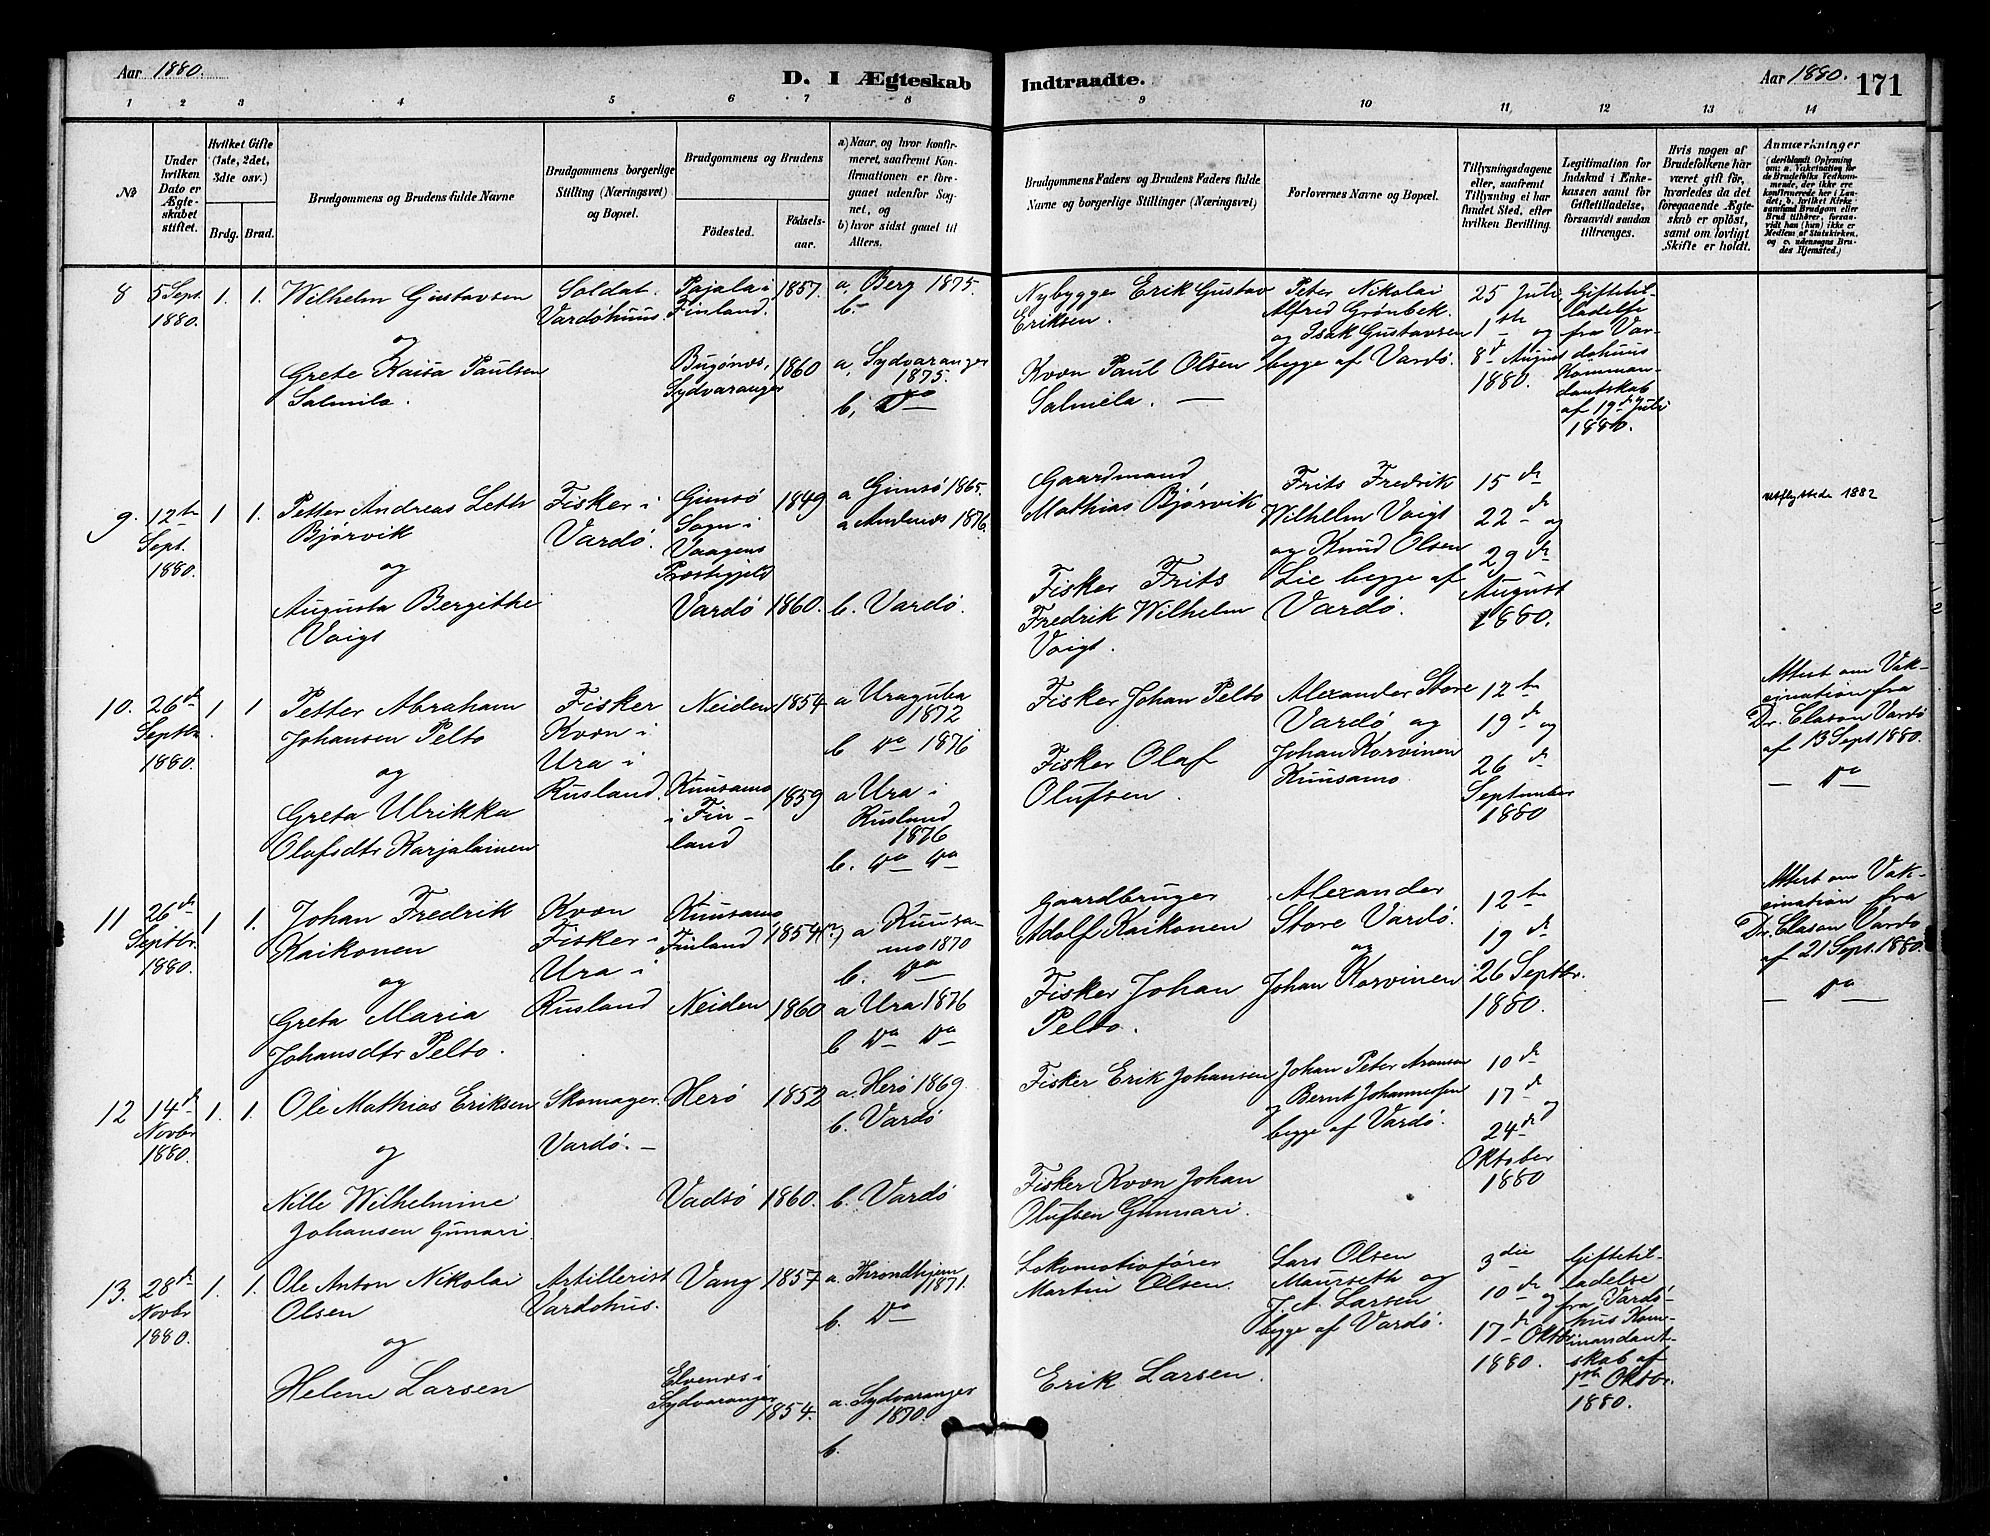 Aar 1880.
D. I Ægteskab Indtraadte.
Aar 1880. 171
1 2 3 4 5 6 7 8 9 10 11 12 13 14
No
Under hvilken Dato er Ægteskabet stiftet.
Hvilket Gifte (1ste, 2det, 3dte osv.)
Brdg. Brud.
Brudgommens og Brudens fulde Navne
Brudgommens borgerlige Stilling (Næringsvei) og Bopæl.
Brudgommens og Brudens
Födested. Födselsaar.
a) Naar, og hvor konfirmeret, saafremt Konfirmationen er foregaaet udenfor Sognet, og
b) hvor sidst gaaet til Alters.
Brudgommens Faders og Brudens Faders fulde Navne og borgerlige Stillinger (Næringsvei)
Forlovernes Navne og Bopæl.
Tillysningsdagene eller, saafremt Tillysning ei har fundet Sted, efter hvilken Bevilling.
Legitimation for Indskud i Enkekassen samt for Giftetilladelse, forsaavidt saadan tiltrænges.
Hvis nogen af Brudefolkene har været gift för, hvorledes da det foregaaende Ægteskab er oplöst, samt om lovligt Skifte er holdt.
Anmærkninger
8 5 Sept. 1880. 1. 1.
Wilhelm Gustavsen
og
Grete Kaisa Paulsen
Salmila.
Soldat.
Vardöhuus.
Pajala i
Finland.
1857.
a, Berg 1875.
b. –
Bugönæs,
Sydvaranger
1860
a, Sydvaranger
1875.
b, Do
Nybygge Erik Gustav
Eriksen.
Kvæn Paul Olsen
Salmela. —
Peter Nikolai
Alfred Grønbek
og Isak Gustavsen
begge af Vardö.
25 Juli,
1ste og
8de August
1880.
Giftetilladelse
fra Vardöhuus
Kommandantskab
af 19de Juli
1880.
9. 12te Sept. 1880. 1 1.
Petter Andreas Leth
Bjørvik
og
Augusta Bergitthe
Voigt
Fisker i
Vardö.
Gimsö
Sogn i
Vaagens
Præstegjeld
1849
a Gimsö 1865.
a Andenæs 1876.
Vardö 1860. b. Vardö.
Gaardmand
Mathias Bjørvik
Fisker Frits
Fredrik Wilhelm
Voigt.
Frits Fredrik
Wilhelm Voigt
og Knud Olsen
Lie begge af
Vardö.
15de
22de og
29de
August
1880.
utflyttede 1882
10. 26de Septbr. 1880. 1 1
Petter Abraham
Johansen Pelto
og
Greta Ulrikka
Olafsdtr Karjalainen
Fisker
Kvæn i
Ura i
Rusland.
Neiden 1854
a Uraguba
1872
b Do 1876
Kuusamo
i Finland
1859
a Ura i
Rusland
1876
b. Do Do
Fisker Johan Pelto
Fisker Olaf
Olufsen.
Alexander Store
Vardö og
Johan Korvinen
Kuusamo
12te
19de og
26de
September
1880
Attest om Vakcination fra
Dr. Clason Vardö
af 13 Sept 1880.
— Do —
11 26de Septbr. 1880. 1 1.
Johan Fredrik
Kaikonen
og
Greta Maria
Johansdtr Pelto.
Kvæn
Fisker i
Ura i
Rusland
Kuusamo
Finland
1854(?)
a Kuusamo 1870
b. Do
Neiden 1860
a Ura 1876
b Do Do
Gaardbruger
Adolf Kaikonen
Fisker Johan
Pelto.
Alexander
Store Vardö.
og
Johan Korvinen
12te
19de
26 Septbr.
1880.
Attest om Vakcination fra
Dr. Clason Vardö
af 21 Sept. 1880.
— Do —
12 14de Novbr 1880. 1. 1.
Ole Mathias Eriksen
og
Nille Wilhelmine
Johansen Gunari.
Skomager.
Vardö. –
Herö 1852
a. Herö 1869.
b. Vardö
Vadsö 1860. b. Vardö
Fisker Erik Johansen
Fisker Kvæn Johan
Olufsen Gunnari.
Johan Peter Aronsen
og Bernt Johannesen
begge af Vardö.
10de
17de og
24de
Oktober
1880
13. 28de Novbr 1880. 1. 1.
Ole Anton Nikolai
Olsen
og
Helene Larsen
Artillerist
Vardöhus.
Vang 1857
a. Throndhjem
1871.
b. Do
Elvenæs i
Sydvaranger
1854.
a. Sydvaranger
1870.
b.
Lokomotivfører
Martin Olsen.
Erik Larsen.
Lars Olsen
Maurseth og
J. A. Larsen
begge af Vardö.
3die
10de og
17de Oktbr
1880.
Giftetilladelse
fra Vardöhus Kommandantskab af
1ste Oktbr.
1880.